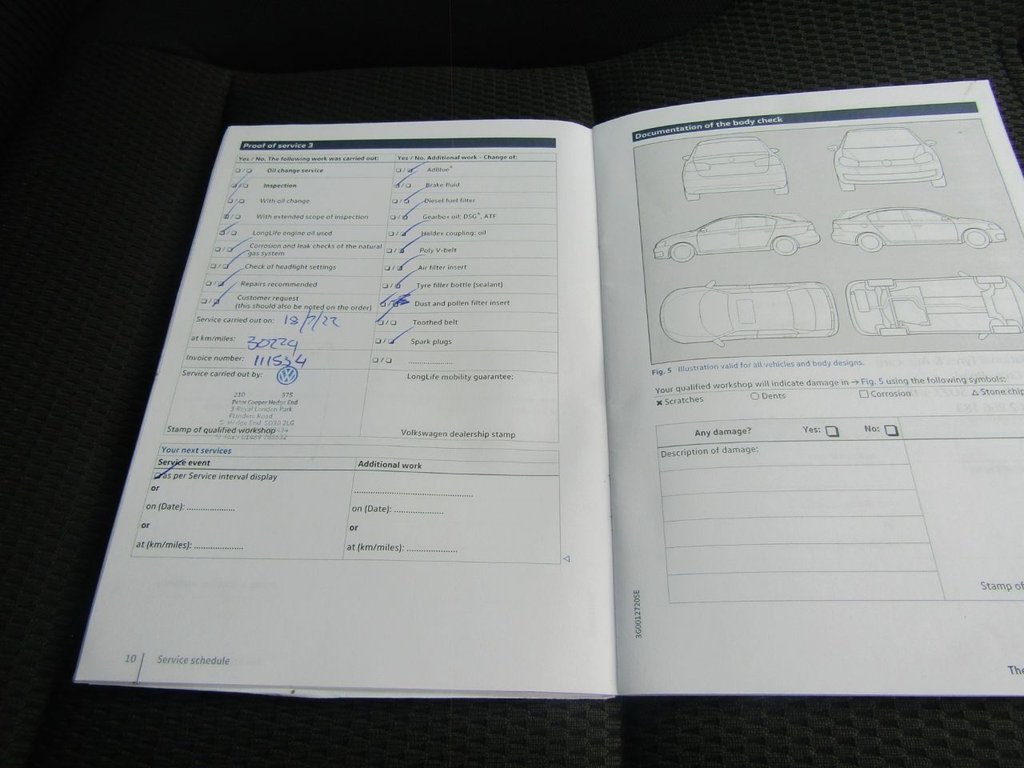 Proof of service 3
Yes / No. The following work was carried out:
Oil change service
Inspection
With oil change
With extended scope of inspection
LongLife engine oil used
Corrosion and leak checks of the natural
gas system
Check of headlight settings
Repairs recommended
Customer request
(this should also be noted on the order)
Service carried out on:
at km/miles: 30224
Invoice number: 111534
Service carried out by:
210 375
Peter Cooper Hedge End
3 Royal London Park
Flanders Road
Stamp of qualified workshop
Yes / No. Additional work - Change of:
AdBlue®
Brake fluid
Diesel fuel filter
Gearbox oil: DSG®, ATF
Haldex coupling: oil
Poly V-belt
Air filter insert
Tyre filler bottle (sealant)
Dust and pollen filter insert
Toothed belt
Spark plugs
LongLife mobility guarantee:
Volkswagen dealership stamp
Your next services
Service event
as per Service interval display
or
on (Date): ....................
or
at (km/miles): ....................
Additional work
on (Date): ....................
or
at (km/miles): ....................
10 Service schedule
Documentation of the body check
Fig. 5 Illustration valid for all vehicles and body designs.
Your qualified workshop will indicate damage in → Fig. 5 using the following symbols:
× Scratches ○ Dents □ Corrosion △ Stone chip
Any damage? Yes: □ No: □
Description of damage:
Stamp of
3G0012720SE
The